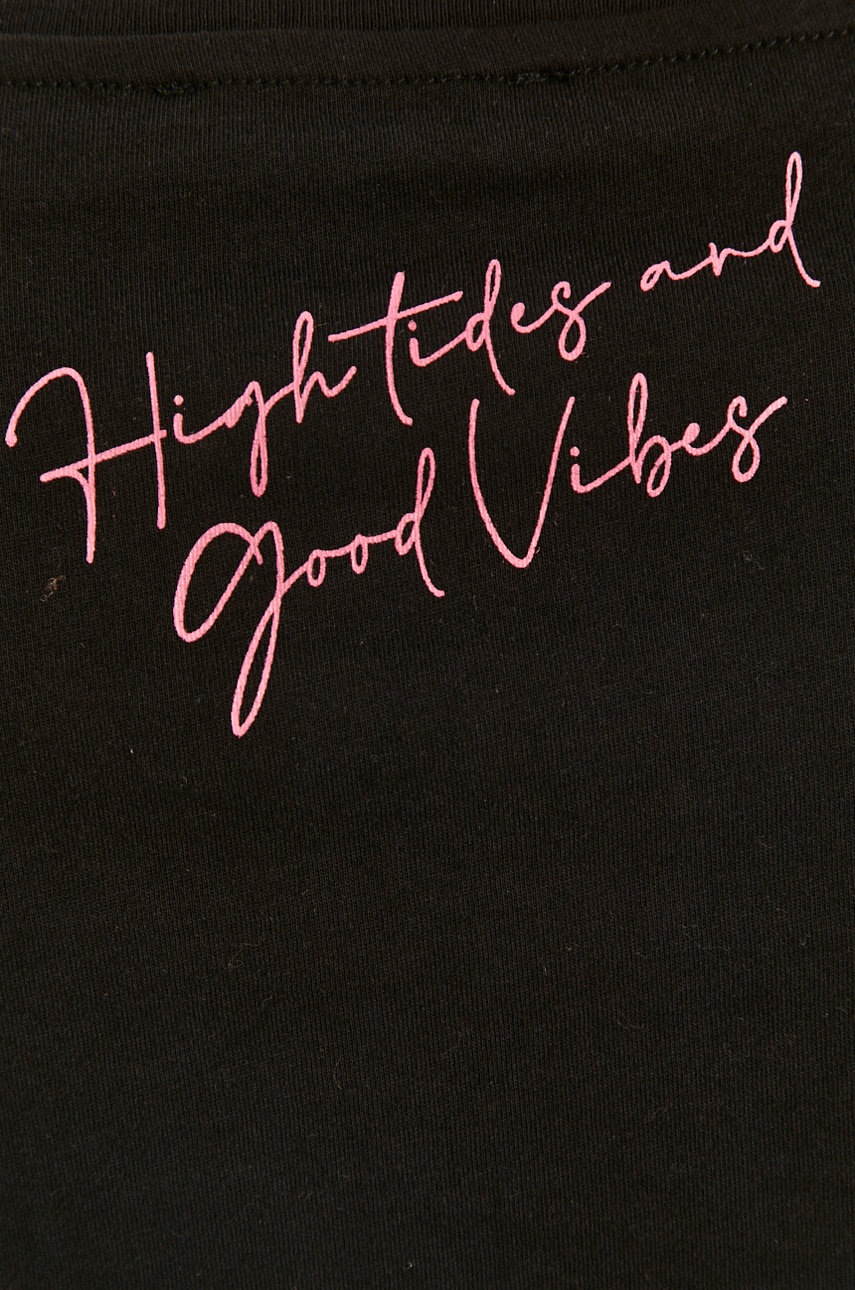 High tides and
good Vibes